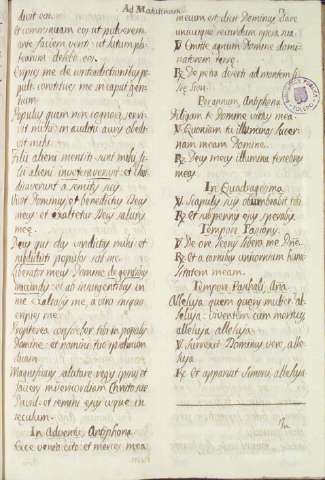 Ad Matutinum.
Et comminuam eos ut pulverem
ante faciem venti: ut lutum pla-
tearum delebo eos.
Eripies me de contradictionibus po-
puli: constitues me in caput gen-
tium.
Populus quem non cognovi, servi-
vit mihi: in auditu auris obedi-
vit mihi.
Filii alieni mentiti sunt mihi, fi-
lii alieni inveteraverunt: et clau-
dicaverunt a semitis suis.
Vivit Dominus, et benedictus Deus
meus: et exaltetur Deus salutis
mee.
Deus qui das vindictas mihi: et
populos sub me:
liberator meus Domine de gentibus
iracundis: et ab insurgentibus in
me exaltabis me, a viro iniquo
eripies me.
Propterea confitebor tibi in populis
Domine: et nomini tuo psalmum
dicam.
Magnificans salutare regis ipsius et
faciens misericordiam Christo suo
David: et semini ejus usque in
seculum.
In Adventu Antiphona
Ecce veniet cito et merces mea
mecum est dicit Dominus dare
unicuique secundum opera sua.
℣ Emitte agnum Domine domi-
natorem terre.
℟ De petra deserti ad montem fi-
lie Sion.
Per annum, Antiphona
Diligam te Domine virtus mea.
℣ Quoniam tu illuminas lucer-
nam meam Domine.
℟ Deus meus illumina tenebras
meas.
In Quadragesima
℣ Scapulis suis obumbrabit tibi
℟ Et sub pennis ejus sperabis.
Tempore Pasionis
℣ De ore leonis libera me Dne.
℟ Et a cornibus unicornium humi-
litatem meam.
Tempore Paschali Ana
Alleluya quem queris mulier al-
leluya: viventem cum mortuis
alleluya alleluya.
℣ Surrexit Dominus vere, alle-
luya
℟ Et apparuit Simoni, alleluya
In